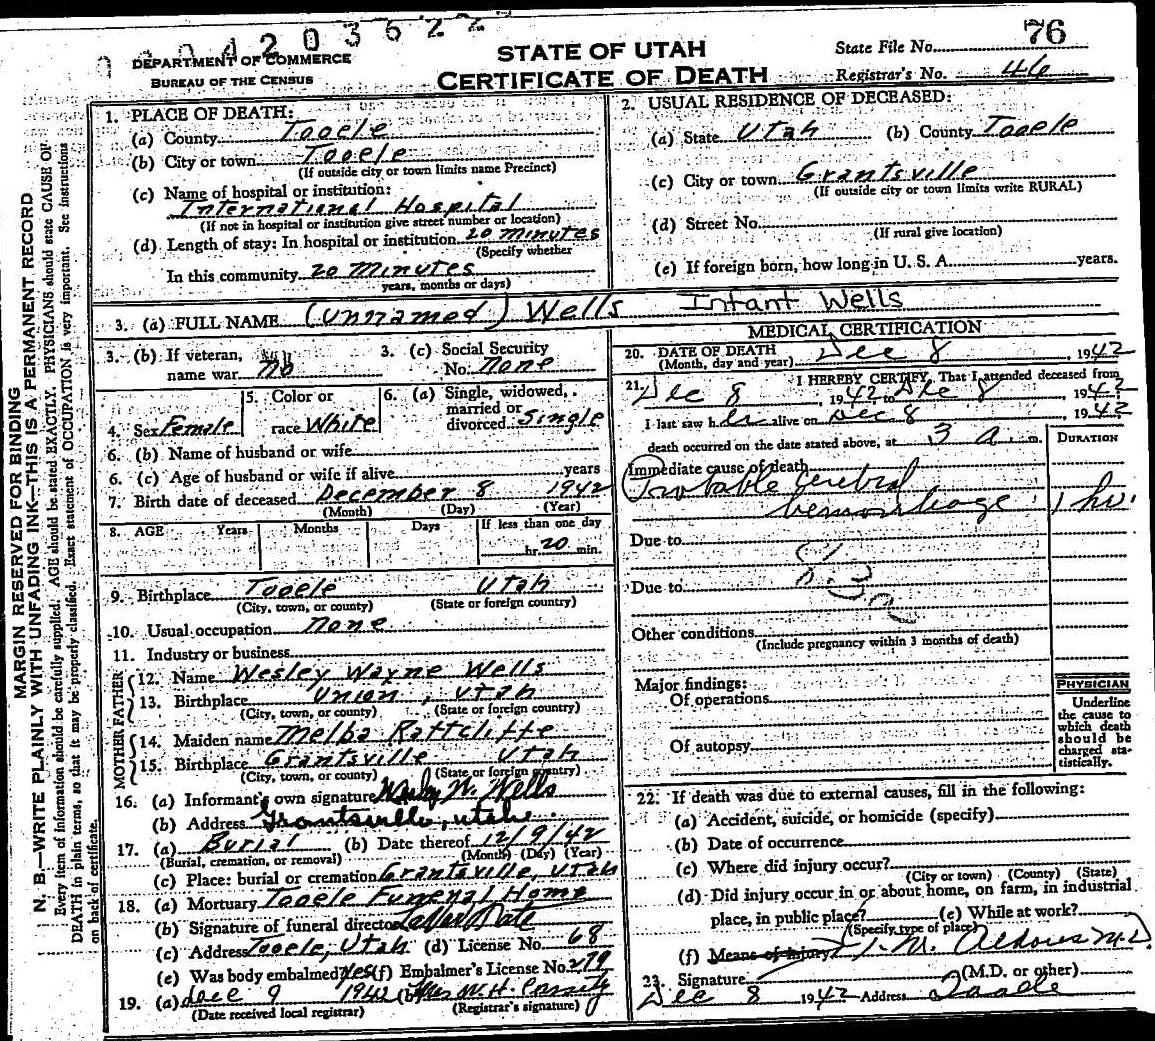 04203622
DEPARTMENT OF COMMERCE
BUREAU OF THE CENSUS
STATE OF UTAH
CERTIFICATE OF DEATH
State File No. 76
Registrar's No. 46
MARGIN RESERVED FOR BINDING
N. B.—WRITE PLAINLY WITH UNFADING INK—THIS IS A PERMANENT RECORD
Every item of information should be carefully supplied. AGE should be stated EXACTLY. PHYSICIANS should state CAUSE OF
DEATH in plain terms, so that it may be properly classified. Exact statement of OCCUPATION is very important. See instructions
on back of certificate.
1. PLACE OF DEATH:
(a) County Tooele
(b) City or town Tooele
(If outside city or town limits name Precinct)
(c) Name of hospital or institution:
International Hospital
(If not in hospital or institution give street number or location)
(d) Length of stay: In hospital or institution 20 minutes
(Specify whether
In this community 20 minutes
years, months or days)
2. USUAL RESIDENCE OF DECEASED:
(a) State Utah (b) County Tooele
(c) City or town Grantsville
(If outside city or town limits write RURAL)
(d) Street No.
(If rural give location)
(e) If foreign born, how long in U. S. A. years.
3. (a) FULL NAME (unnamed) Wells Infant Wells
3. (b) If veteran,
name war no
3. (c) Social Security
No. None
4. Sex Female
5. Color or
race White
6. (a) Single, widowed,
married or
divorced Single
6. (b) Name of husband or wife
6. (c) Age of husband or wife if alive years
7. Birth date of deceased December 8 1942
(Month) (Day) (Year)
8. AGE Years Months Days If less than one day
hr. 20 min.
9. Birthplace Tooele Utah
(City, town, or county) (State or foreign country)
10. Usual occupation none
11. Industry or business
FATHER
12. Name Wesley Wayne Wells
13. Birthplace Union, Utah
(City, town, or county) (State or foreign country)
MOTHER
14. Maiden name Melba Rattcliffe
15. Birthplace Grantsville Utah
(City, town, or county) (State or foreign country)
16. (a) Informant's own signature Wesley W. Wells
(b) Address Grantsville, Utah
17. (a) Burial (b) Date thereof 12/9/42
(Burial, cremation, or removal) (Month) (Day) (Year)
(c) Place: burial or cremation Grantsville, Utah
18. (a) Mortuary Tooele Funeral Home
(b) Signature of funeral director
(c) Address Tooele, Utah (d) License No. 68
(e) Was body embalmed? yes (f) Embalmer's License No. 279
19. (a) Dec 9 1942 (b) Mrs W. H. Cassity
(Date received local registrar) (Registrar's signature)
MEDICAL CERTIFICATION
20. DATE OF DEATH
(Month, day and year) Dec 8, 1942
21. I HEREBY CERTIFY, That I attended deceased from
Dec 8, 1942 to Dec 8, 1942
I last saw her alive on Dec 8, 1942
death occurred on the date stated above, at 3 a. m.
DURATION
Immediate cause of death
Probable cerebral
hemorrhage 1 hr.
Due to
Due to
Other conditions
(Include pregnancy within 3 months of death)
Major findings:
Of operations
Of autopsy
PHYSICIAN
Underline
the cause to
which death
should be
charged sta-
tistically.
22. If death was due to external causes, fill in the following:
(a) Accident, suicide, or homicide (specify)
(b) Date of occurrence
(c) Where did injury occur?
(City or town) (County) (State)
(d) Did injury occur in or about home, on farm, in industrial
place, in public place? (e) While at work?
(Specify type of place)
(f) Means of injury
23. Signature (M.D. or other)
Dec 8 1942 Address Tooele